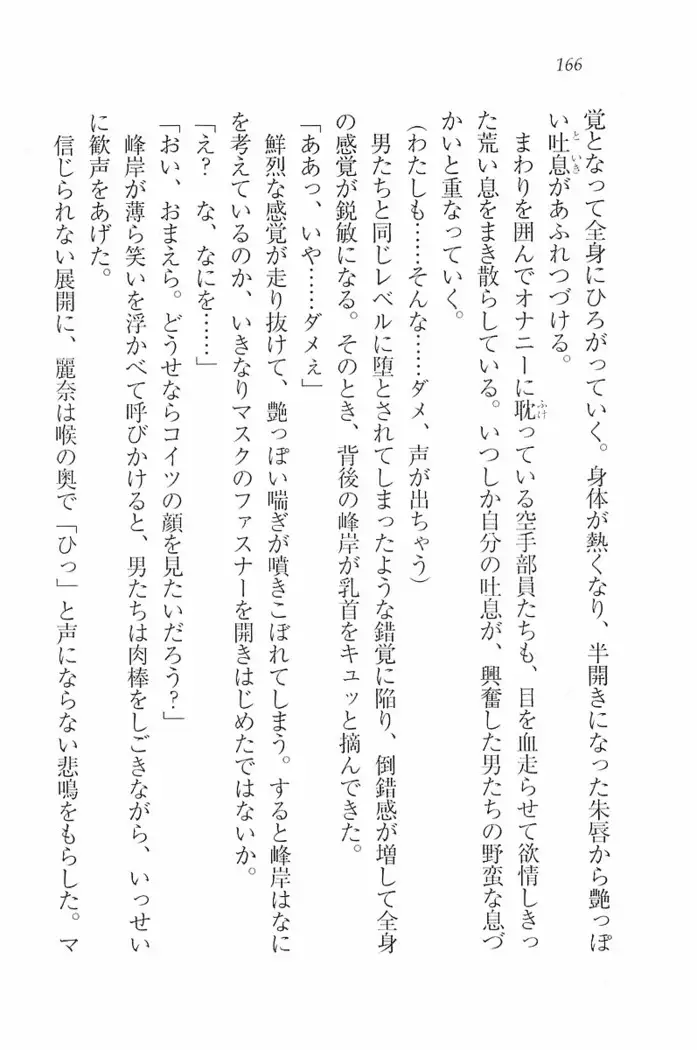 166
覚となって全身にひろがっていく。身体が熱くなり、半開きになった朱唇から艶っぽ
い吐息があふれつづける。
といき
まわりを囲んでオナニーに耽っている空手部員たちも、目を血走らせて欲情しきっ
ふけ
た荒い息をまき散らしている。いつしか自分の吐息が、興奮した男たちの野蛮な息づ
かいと重なっていく。
(わたしも……そんな……ダメ、声が出ちゃう)
男たちと同じレベルに堕とされてしまったような錯覚に陥り、倒錯感が増して全身
の感覚が鋭敏になる。そのとき、背後の峰岸が乳首をキュッと摘んできた。
「ああっ、いや……ダメぇ」
鮮烈な感覚が走り抜けて、艶っぽい喘ぎが噴きこぼれてしまう。すると峰岸はなに
を考えているのか、いきなりマスクのファスナーを開きはじめたではないか。
「え?　な、なにを……」
「おい、おまえら。どうせならコイツの顔を見たいだろう?」
峰岸が薄ら笑いを浮かべて呼びかけると、男たちは肉棒をしごきながら、いっせい
に歓声をあげた。
信じられない展開に、麗奈は喉の奥で「ひっ」と声にならない悲鳴をもらした。マ